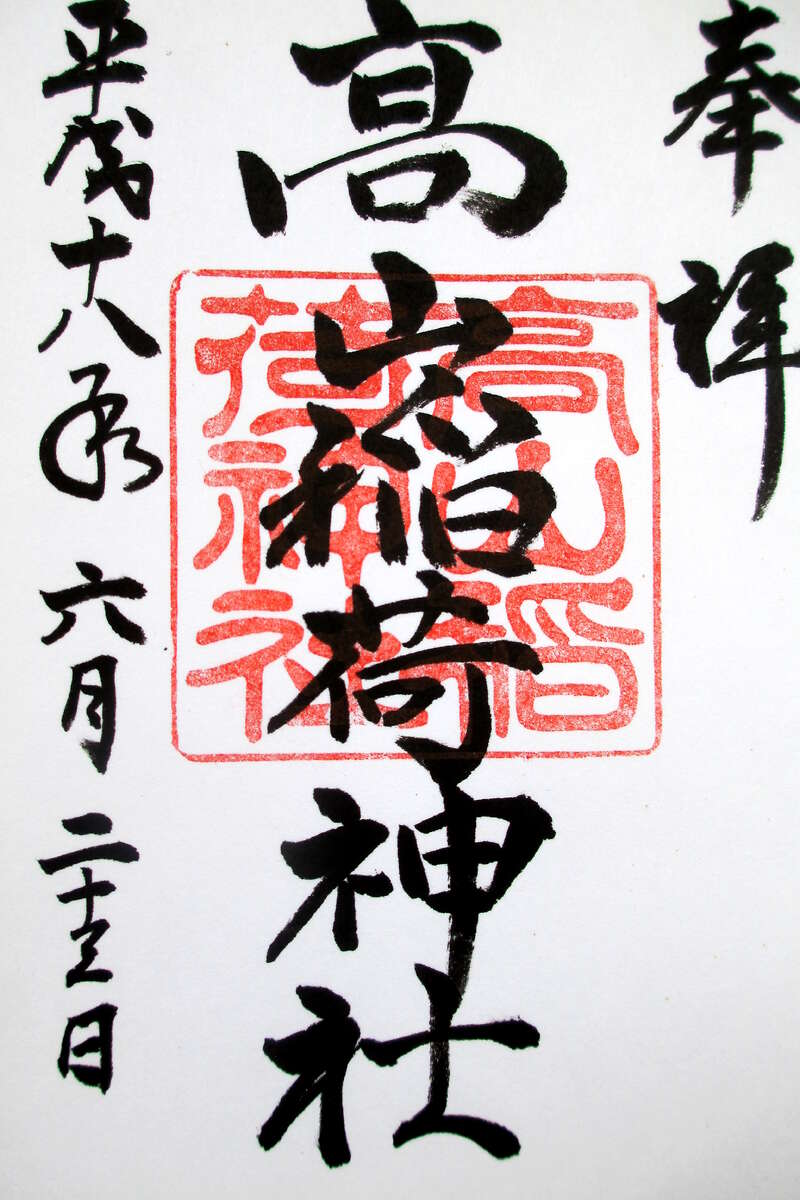 奉拝
高山稲荷神社
高山稲
荷神社
平成十八年六月二十三日